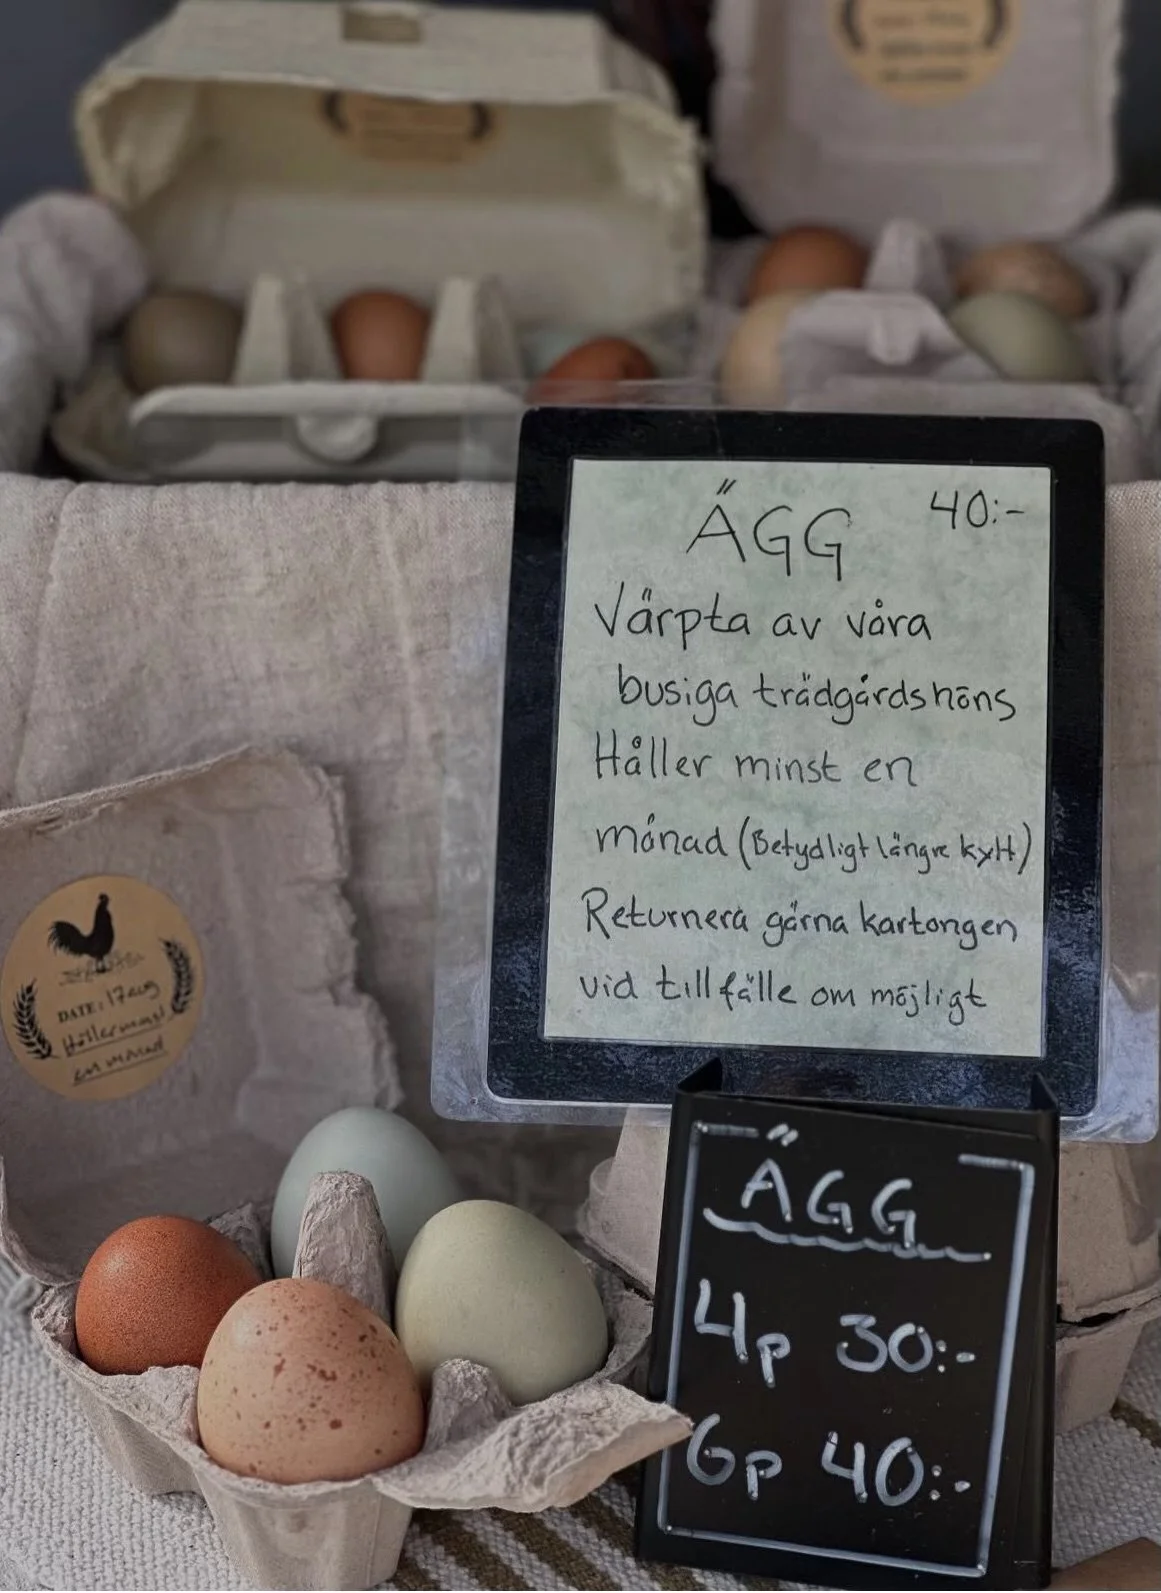 ÄGG 40:-
Värpta av våra
busiga trädgårdshöns
Håller minst en
månad (Betydligt längre kylt)
Returnera gärna kartongen
vid tillfälle om möjligt
ÄGG
4p 30:-
6p 40:-
DATE: 17 aug
Håller minst
en månad